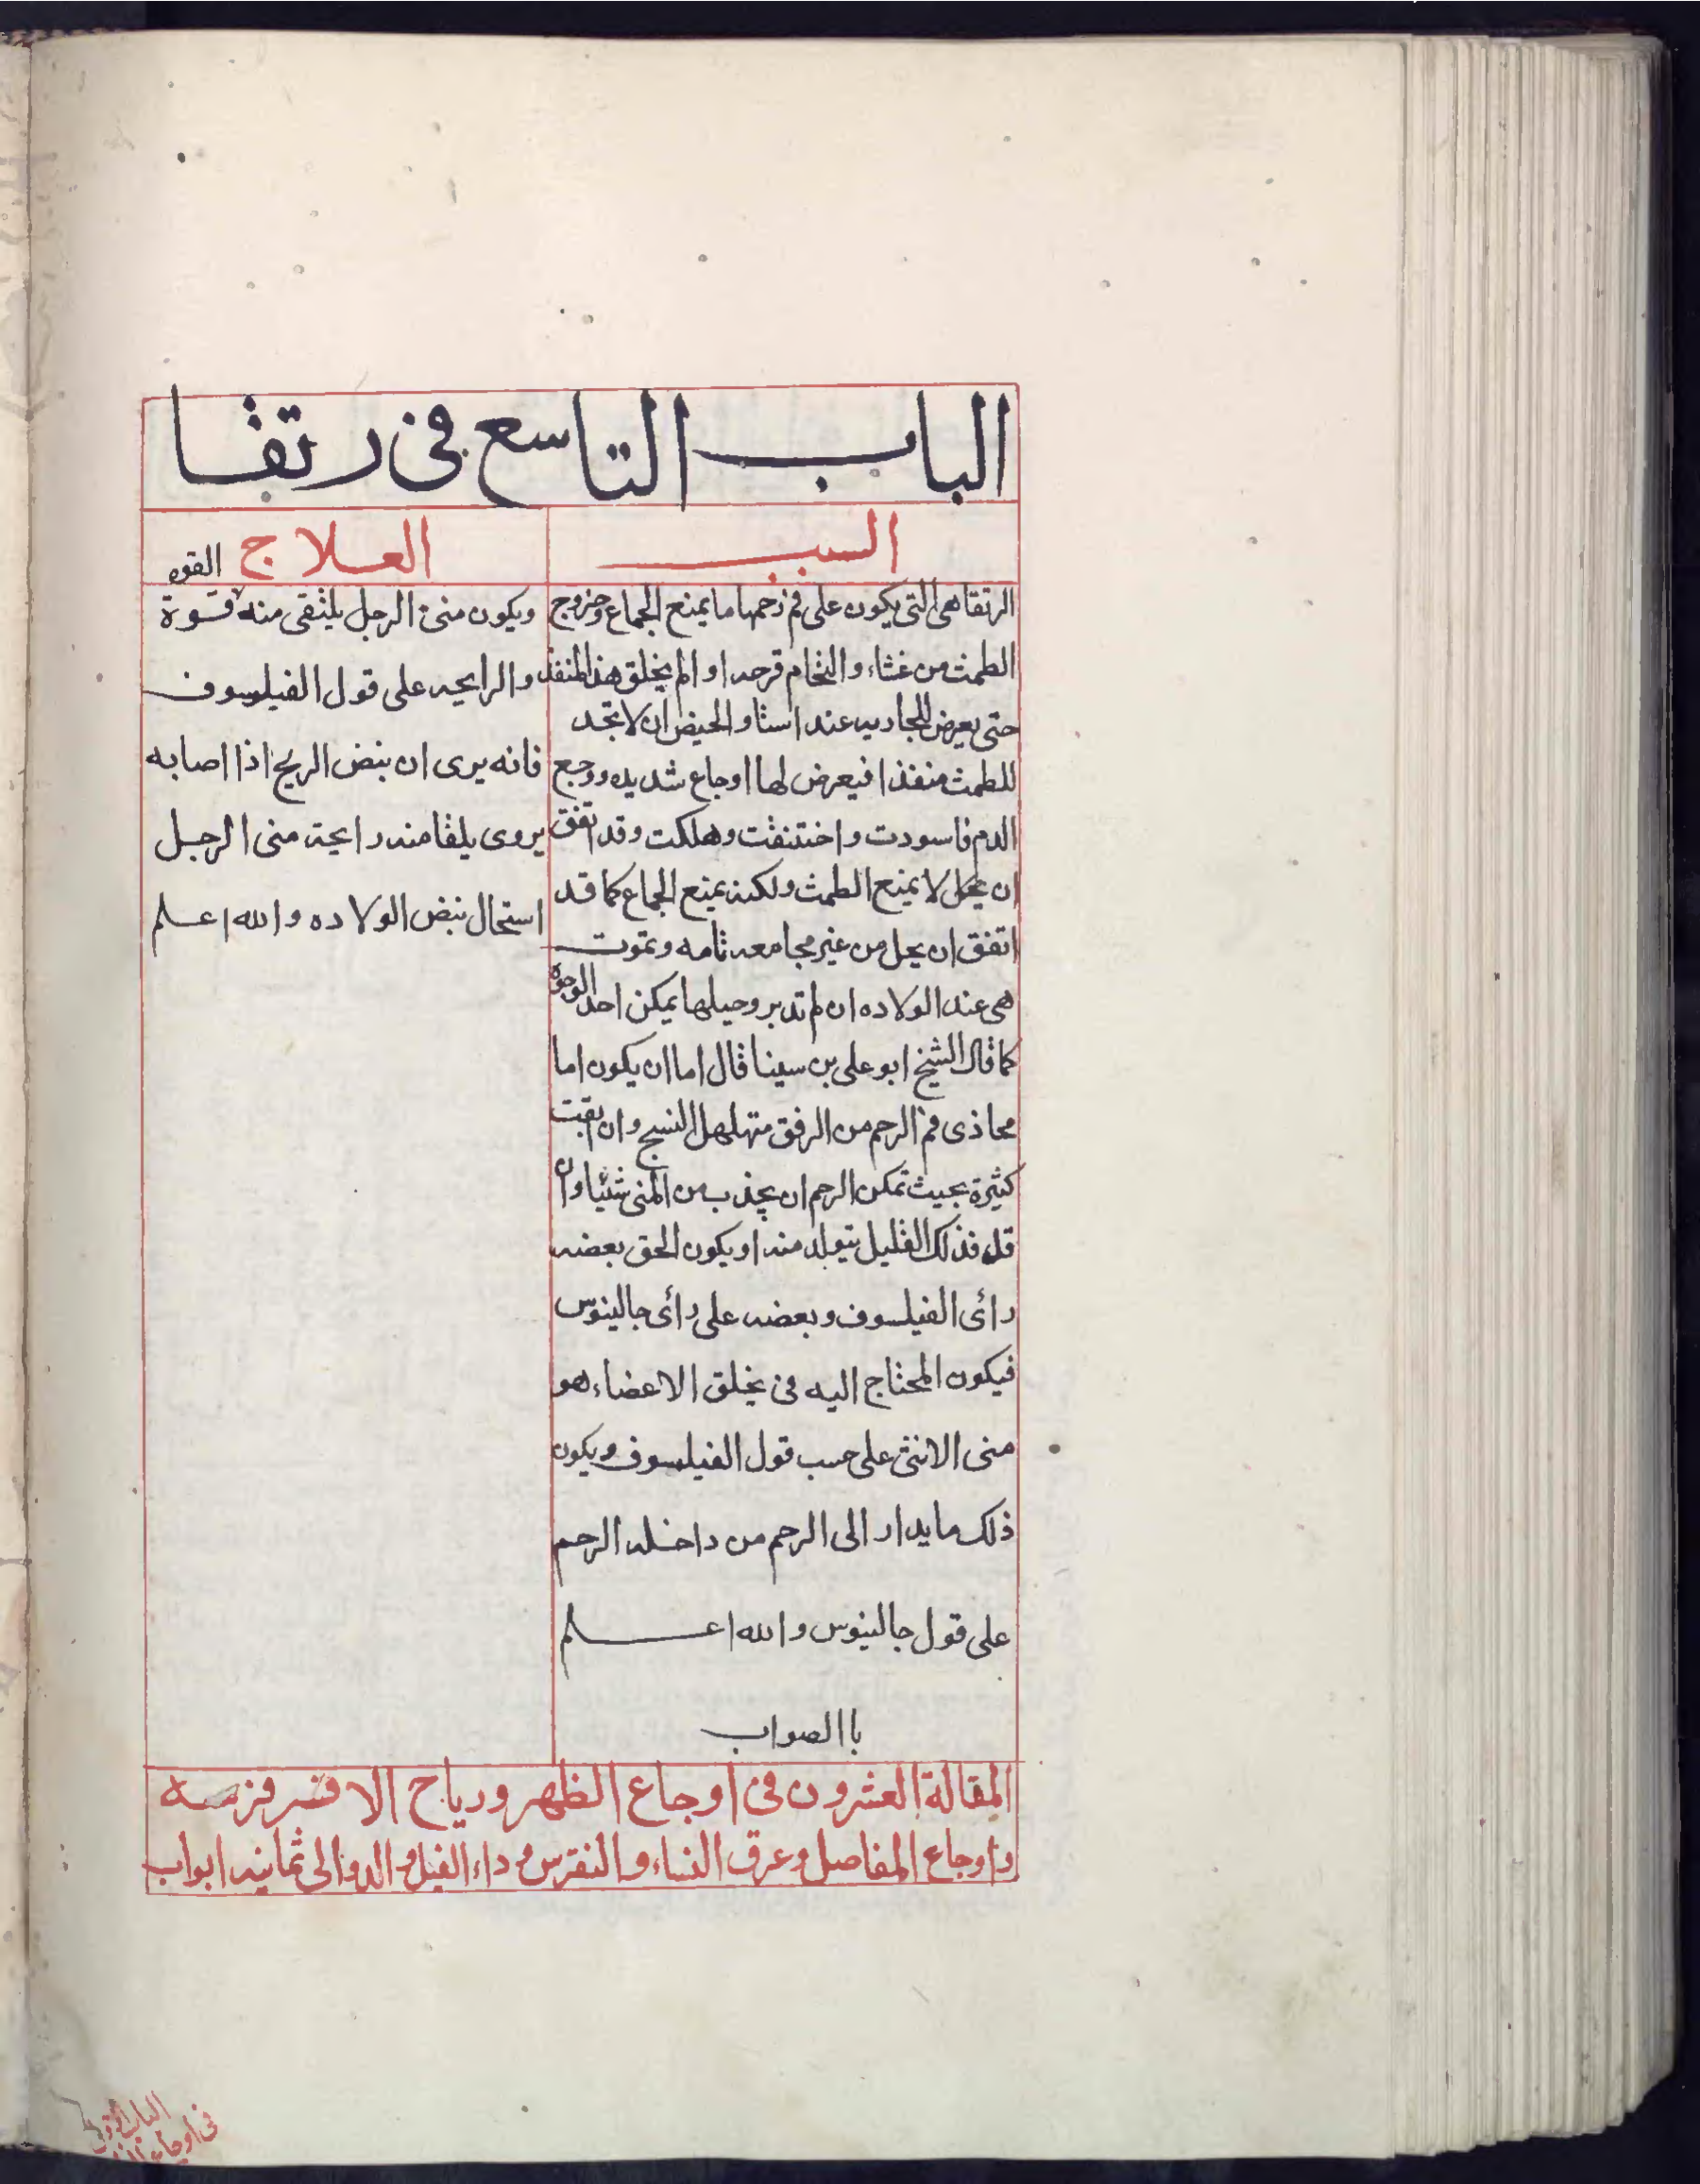 الباب التاسع في رتقا
السبب
الرتقا هي التي يكون على فم رحمها ما يمنع الجماع وخروج
الطمث من غشاء والتحام قرحه او الم يخلق هذا المنفذ
حتى يعرض للجاريه عند استاو الحيض ان لا تجد
للطمث منفذا فيعرض لها اوجاع شديده ووجع
الدم فاسودت واختنقت وهلكت وقد اتفق
ان يحل لا يمنع الطمث ولكنه يمنع الجماع كما قد
اتفق ان يحل من غير مجامعه تامه وتموت
هي عند الولاده ان لم تدبر وحيلها يمكن احد الوجوه
كما قال الشيخ ابو على بن سينا قال اما ان يكون اما
محاذى فم الرحم من الرفق متهلهل النسج وان بقيت
كثيرة بحيث تمكن الرحم ان يجذب من المنى شيئا وان
قل فذلك القليل يتولد منه او يكون الحق بعضه
رائ الفيلسوف وبعضه على رائ جالينوس
فيكون المحتاج اليه في يخلق الاعضاء هو
منى الانثى على حسب قول الفيلسوف ويكون
ذلك ما يدار الى الرحم من داخله الرحم
على قول جالينوس والله اعلم
با الصواب
العلاج
القوه
ويكون منى الرجل يلتقى منه قوة
والرايحه على قول الفيلسوف
فانه يرى ان بنض الريح اذا اصابه
يروى يلقا منه رايحة منى الرجل
استحال بنض الولاده والله اعلم
المقالة العشرون في اوجاع الظهر ورياح الافرسه
واوجاع المفاصل وعرق النساء والنقرس وداء الفيل والدوالى ثمانيه ابواب
الباب الاول
في اوجاع